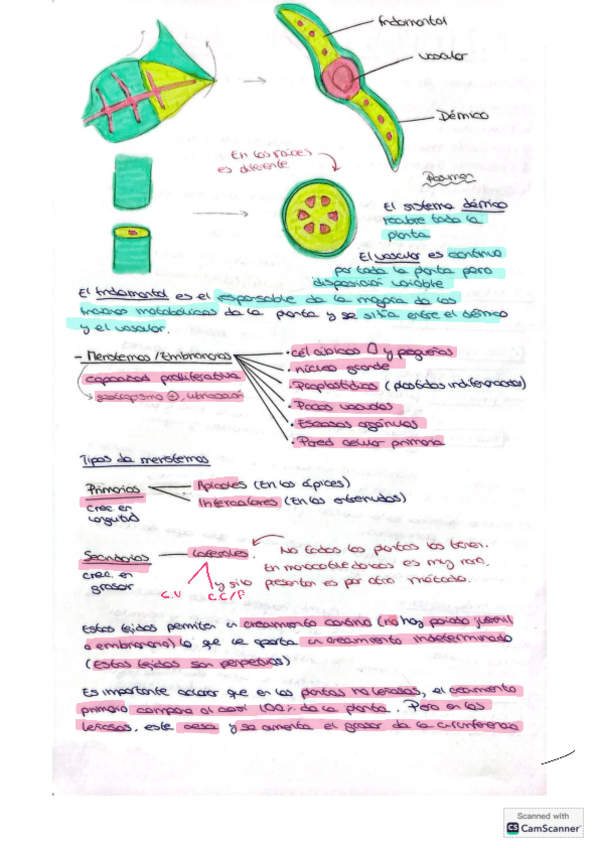 Fndamental
vascular
Dérmico
En las raíces
es diferente
Resumen
El sistema dérmico
recubre toda la
planta
El vascular es continuo
por toda la planta pero
disposición variable
El fndamental es el responsable de la mayoría de las
funciones metabólicas de la planta y se sitúa entre el dérmico
y el vascular.
- Meristemos / Embrionarios
capacidad proliferativa
geotropismo ⊕, ubicación
· cél cúbicas y pequeñas
· núcleo grande
· Proplastidios (plastidios indiferenciados)
· Pocas vacuolas
· Escasos orgánulos
· Pared celular primaria
Tipos de meristemos
Primarios
crec en
longitud
Apicales (En los ápices)
Intercalares (En los entrenudos)
Secundarios
crec. en
grosor
Laterales
C.V
C.C/F
No todas las plantas los tienen.
En monocotiledóneas es muy raro,
y si lo presentan es por otro método.
Estos tejidos permiten un crecimiento continuo (no hay periodo juvenil
o embrionario) lo que le aporta un crecimiento indeterminado
(Estos tejidos son perpetuos)
Es importante aclarar que en las plantas no leñosas, el crecimiento
primario compone al casi 100% de la planta. Pero en las
leñosas, este cesa y se aumenta el grosor de la circunferencia
Scanned with
CS CamScanner